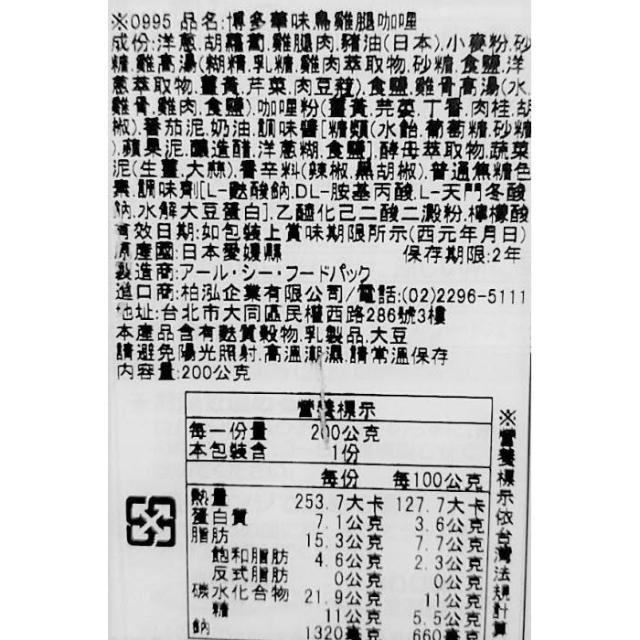 ※0995 品名:博多華味鳥雞腿咖哩
成份:洋蔥.胡蘿蔔.雞腿肉.豬油(日本).小麥粉.砂
糖.雞高湯(糊精.乳糖.雞肉萃取物.砂糖.食鹽.洋
蔥萃取物.薑黃.芹菜.肉豆蔻).食鹽.雞骨高湯(水.
雞骨.雞肉.食鹽).咖哩粉(薑黃.芫荽.丁香.肉桂.胡
椒).番茄泥.奶油.調味醬[糖類(水飴.葡萄糖.砂糖
).蘋果泥.釀造醋.洋蔥糊.食鹽].酵母萃取物.蔬菜
泥(生薑.大蒜).香辛料(辣椒.黑胡椒).普通焦糖色
素.調味劑[L-麩酸鈉.DL-胺基丙酸.L-天門冬酸
鈉.水解大豆蛋白].乙醯化己二酸二澱粉.檸檬酸
有效日期:如包裝上賞味期限所示(西元年月日)
原產國:日本愛媛縣 保存期限:2年
製造商:アール・シー・フードパック
進口商:柏泓企業有限公司/電話:(02)2296-5111
地址:台北市大同區民權西路286號3樓
本產品含有麩質穀物.乳製品.大豆
請避免陽光照射.高溫潮濕.請常溫保存
內容量:200公克
營養標示
每一份量 200公克
本包裝含 1份
每份 每100公克
熱量 253.7大卡 127.7大卡
蛋白質 7.1公克 3.6公克
脂肪 15.3公克 7.7公克
飽和脂肪 4.6公克 2.3公克
反式脂肪 0公克 0公克
碳水化合物 21.9公克 11公克
糖 11公克 5.5公克
鈉 1320毫克 660毫克
※營養標示依台灣法規計算